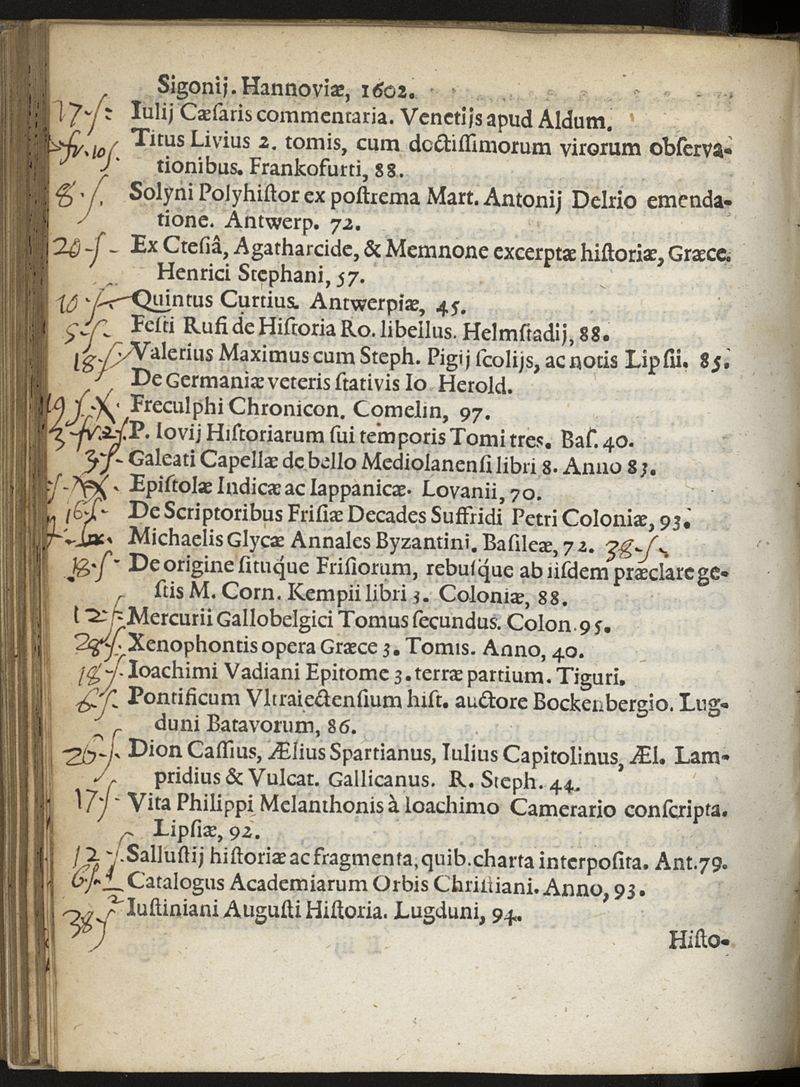 Sigonij. Hannoviæ, 1602.
17-ſ- Iulij Cæſaris commentaria. Venetijs apud Aldum.
Titus Livius 2. tomis, cum doctiſſimorum virorum obſerva-
tionibus. Frankofurti, 88.
8-ſ. Solyni Polyhiſtor ex poſtrema Mart. Antonij Delrio emenda-
tione. Antwerp. 72.
20-ſ- Ex Cteſiâ, Agatharcide, & Memnone excerptæ hiſtoriæ, Græce.
Henrici Stephani, 57.
10-ſ- Quintus Curtius. Antwerpiæ, 45.
5-ſ- Feſti Rufi de Hiſtoria Ro. libellus. Helmſtadij, 88.
18-ſ- Valerius Maximus cum Steph. Pigij ſcolijs, ac notis Lipſii. 85.
De Germaniæ veteris ſtativis Io Herold.
Freculphi Chronicon. Comelin, 97.
P. Iovij Hiſtoriarum ſui temporis Tomi tres. Baſ. 40.
3-ſ- Galeati Capellæ de bello Mediolanenſi libri 8. Anno 83.
Epiſtolæ Indicæ ac Iappanicæ. Lovanii, 70.
16-ſ- De Scriptoribus Friſiæ Decades Suffridi Petri Coloniæ, 93.
Michaelis Glycæ Annales Byzantini. Baſileæ, 72. 38-ſ-
18-ſ- De origine ſituque Friſiorum, rebuſque ab iiſdem præclare ge-
ſtis M. Corn. Kempii libri 3. Coloniæ, 88.
12-ſ- Mercurii Gallobelgici Tomus ſecundus. Colon. 95.
28-ſ. Xenophontis opera Græce 3. Tomis. Anno, 40.
18-ſ- Ioachimi Vadiani Epitome 3. terræ partium. Tiguri.
6-ſ. Pontificum Vltraiectenſium hiſt. auctore Bockenbergio. Lug-
duni Batavorum, 86.
26-ſ. Dion Caſſius, Ælius Spartianus, Iulius Capitolinus, Æl. Lam-
pridius & Vulcat. Gallicanus. R. Steph. 44.
17-ſ- Vita Philippi Melanthonis à Ioachimo Camerario conſcripta.
Lipſiæ, 92.
12-ſ. Salluſtij hiſtoriæ ac fragmenta, quib. charta interpoſita. Ant. 79.
6-ſ- Catalogus Academiarum Orbis Chriſtiani. Anno, 93.
38-ſ Iuſtiniani Auguſti Hiſtoria. Lugduni, 94.
Hiſto-